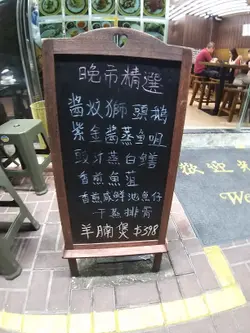 晚市精選
醬炆獅頭鵝
紫金醬蒸魚咀
豉汁蒸白鱔
香煎魚藍
香煎咸鮮池魚仔
干蒸排骨
羊腩煲 $398
歡迎
We